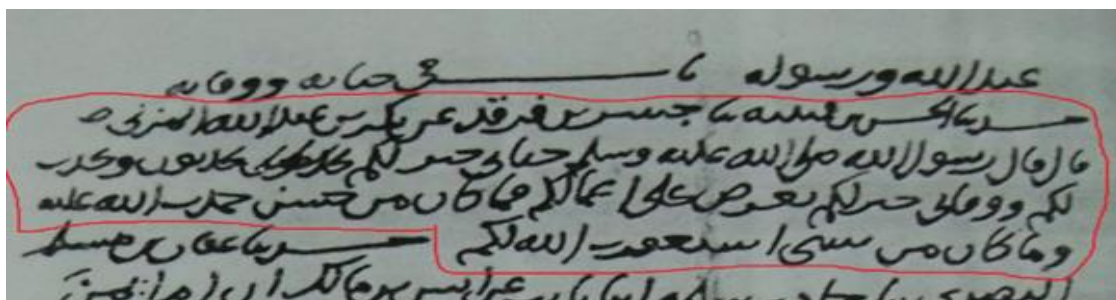 عبد الله ورسوله ما في حياته ووفاته
حدثنا الحسن بن قتيبة نا جسر بن فرقد عن بكر بن عبد الله المزني
قال قال رسول الله صلى الله عليه وسلم حياتي خير لكم تحدثون ونحدث
لكم ووفاتي خير لكم تعرض علي اعمالكم فما كان من حسن حمدت الله عليه
وما كان من سيئ استغفرت الله لكم حدثنا عفان بن مسلم
عن انس بن مالك ان